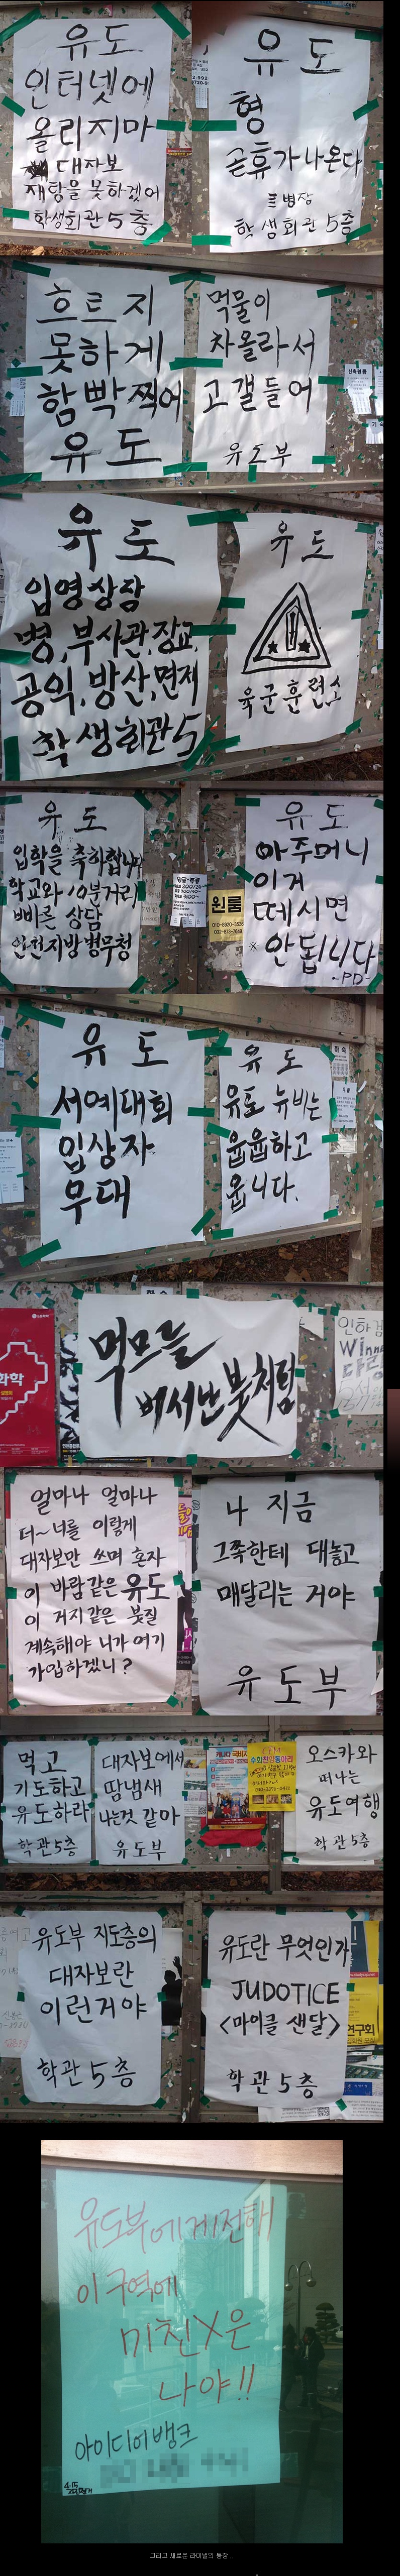 유도
인터넷에
올리지마
대자보
재탕을 못하겠어
학생회관 5층
유도
형
곧 휴가 나온다
병장
학생회관 5층
흐트지
못하게
함빡 찍어
유도
먹물이
차올라서
고갤들어
유도부
유도
입영상담
병,부사관,장교,
공익,방산,면제
학생회관 5
유도
육군훈련소
유도
입학을 축하합니다
학교와 10분거리
빠른 상담
인천지방병무청
원룸
유도
아주머니
이거
떼시면
※ 안됩니다
-PD-
유도
서예대회
입상자
우대
유도
유도 뉴비는
윱윱하고
웁니다.
화학
먹므을
벼서난 붓처럼
얼마나 얼마나
더~ 너를 이렇게
대자보만 쓰며 혼자
이 바람같은 유도
이 거지같은 붓질
계속해야 니가 여기
가입하겠니?
나 지금
그쪽한테 대놓고
매달리는 거야
유도부
먹고
기도하고
유도하라
학관 5층
대자보에서
땀냄새
나는것 같아
유도부
오스카와
떠나는
유도여행
학관 5층
유도부 지도층의
대자보란
이런거야
학관 5층
유도란 무엇인가
JUDOTICE
<마이클 샌달>
학관 5층
연구회
유도부에게 전해
이 구역에
미친X은
나야!!
아이디어뱅크
그리고 새로운 라이벌의 등장 ..